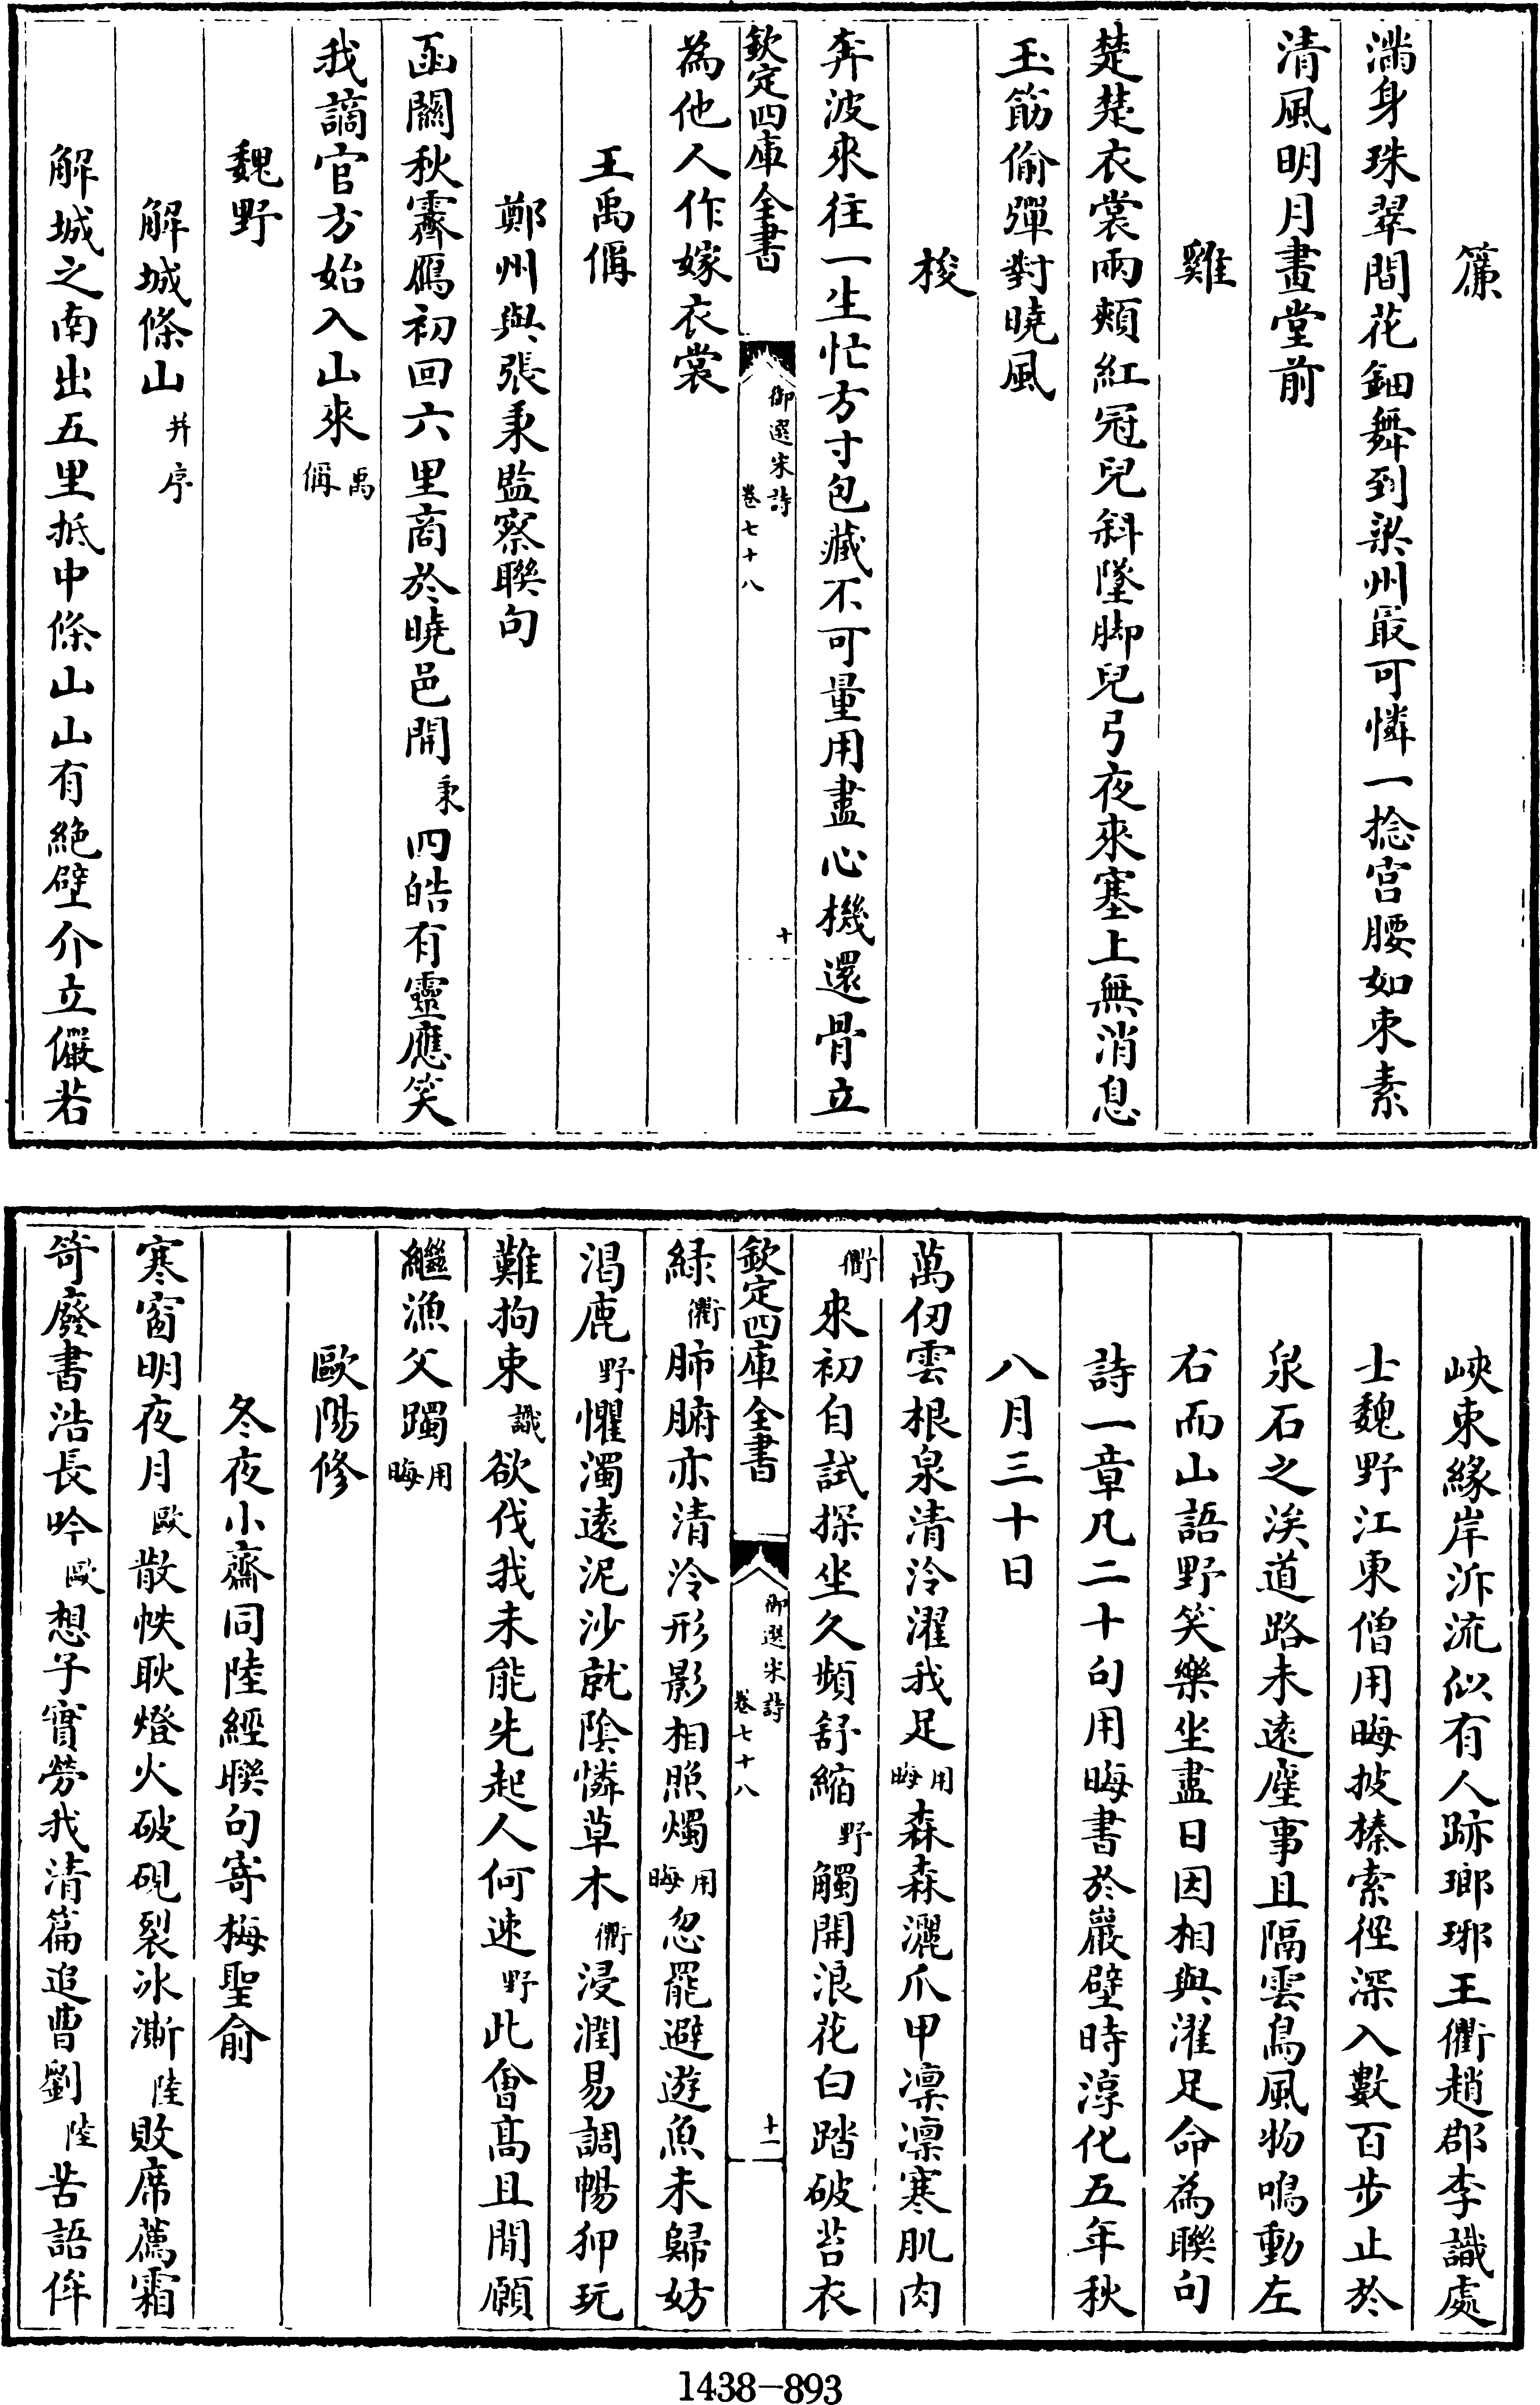 簾
滿身珠翠間花鈿舞到梁州最可憐一捻宮腰如束素
清風明月畫堂前
雞
楚楚衣裳兩頰紅冠兒斜墜脚兒弓夜來塞上無消息
玉筯偷彈對曉風
梭
奔波來往一生忙方寸包藏不可量用盡心機還骨立
欽定四庫全書 御選宋詩 卷七十八 十
為他人作嫁衣裳
王禹偁
鄭州與張秉監察聯句
函關秋霽鴈初回六里商於曉邑開秉四皓有靈應笑
我謫官方始入山來禹偁
魏野
解城條山并序
解城之南出五里抵中條山山有絶壁介立儼若
峽束緣岸泝流似有人跡瑯琊王衢趙郡李識處
士魏野江東僧用晦披榛索徑深入數百步止於
泉石之涘道路未遠塵事且隔雲鳥風物鳴動左
右而山語野笑樂坐盡日因相與濯足命為聯句
詩一章凡二十句用晦書於巖壁時淳化五年秋
八月三十日
萬仞雲根泉清泠濯我足用晦森森灑爪甲凛凛寒肌肉
衢來初自試探坐久頻舒縮野觸開浪花白踏破苔衣
欽定四庫全書 御選宋詩 卷七十八 十一
緑衢肺腑亦清泠形影相照燭用晦忽罷避遊魚未歸妨
渴鹿野懼濁遠泥沙就陰憐草木衢浸潤易調暢狎玩
難拘束識欲伐我未能先起人何速野此會高且閒願
繼漁父躅用晦
歐陽修
冬夜小齋同陸經聯句寄梅聖俞
寒窗明夜月歐散帙耿燈火破硯裂冰澌陸敗席薦霜
笴廢書浩長吟歐想子實勞我清篇追曹劉陸苦語侔
1438-893